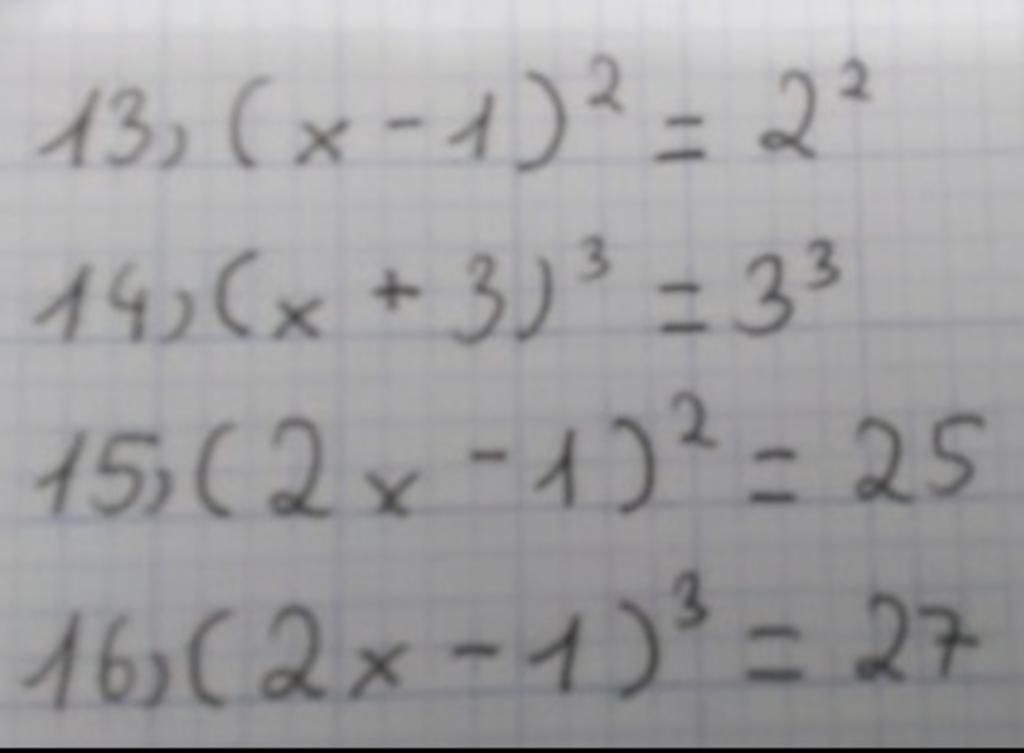 13, (x - 1)² = 2²
14, (x + 3)³ = 3³
15, (2x - 1)² = 25
16, (2x - 1)³ = 27